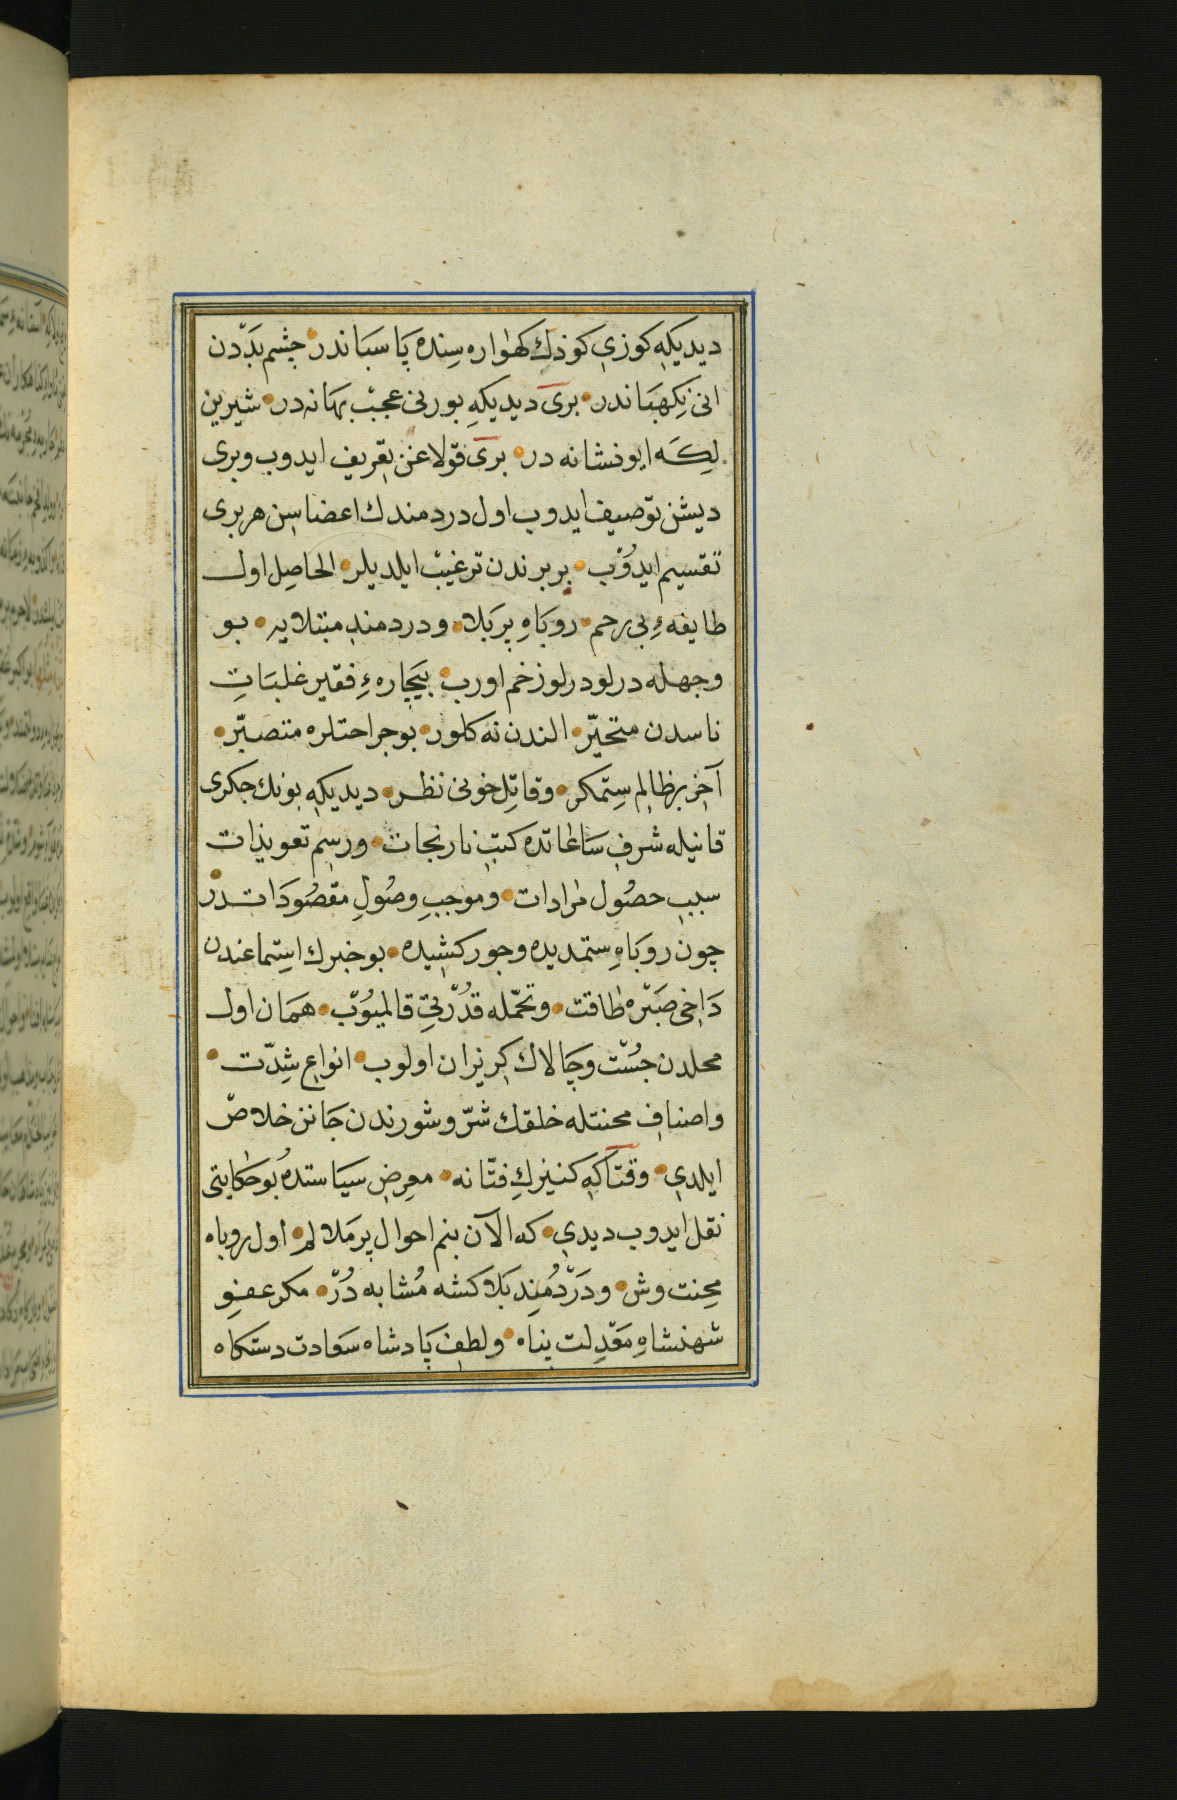 ديديكه كوزى كودك كهواره سنده پاسباندر چشم بددن
انى نكهباندر برى ديديكه بورنى عجب بهانه در شيرين
لكه ايو نشانه در برى قولاغن تعريف ايدوب وبرى
ديشن توصيف ايدوب اول دردمندك اعضاسن هر برى
تقسيم ايدوب بربرندن ترغيب ايلديلر الحاصل اول
طايفهٔ بى رحم روباه پر بلا و دردمند مبتلايه بو
وجهله درلو درلو زخم اورب بيچارهٔ فقير غلبات
ناسدن متحير الندن نه كلور بو جراحتلره متصبر
آخر بر ظالم ستمكر وقاتل خونى نظر ديديكه بونك جكرى
قانيله شرف ساعاتده كتب نارنجات ورسم تعويذات
سبب حصول مرادات وموجب وصول مقصوداتدر
چون روباه ستمديده وجور كشيده بو خبرك استماعندن
داخى صبره طاقت وتحمله قدرتى قالميوب همان اول
محلدن جست وچالاك كريزان اولوب انواع شدت
واصناف محنتله خلقك شر و شورندن جانن خلاص
ايلدى وقتاكه كنيزك فتانه معرض سياستده بو حكايتى
نقل ايدوب ديدى كه الآن بنم احوال پرملالم اول روباه
محنت وش ودردمند بلاكشه مشابه در مكر عفو
شهنشاه معدلت پناه ولطف پادشاه سعادت دستكاه